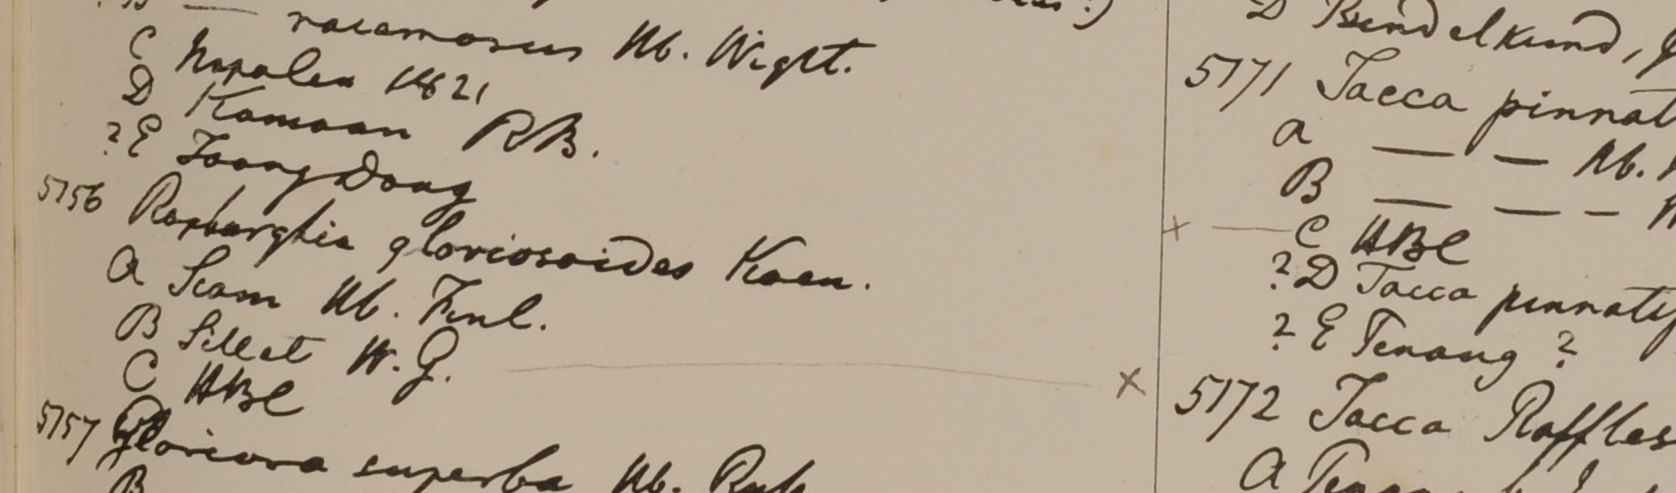 B — racemosus Hb. Wight.
C Napalea 1821
D Kamaon RB.
? E Toong Dong
5156 Roxburghia gloriosoides Koen.
A Siam Hb. Finl.
B Sillet W. G.
C HBC
5157 Gloriosa superba Hb. Roxb
B
D Bundelkund,
5171 Tacca pinnat
a — — Hb.
B — — —
C HBC
? D Tacca pinnatif
? E Penang ?
5172 Tacca Raffles
A